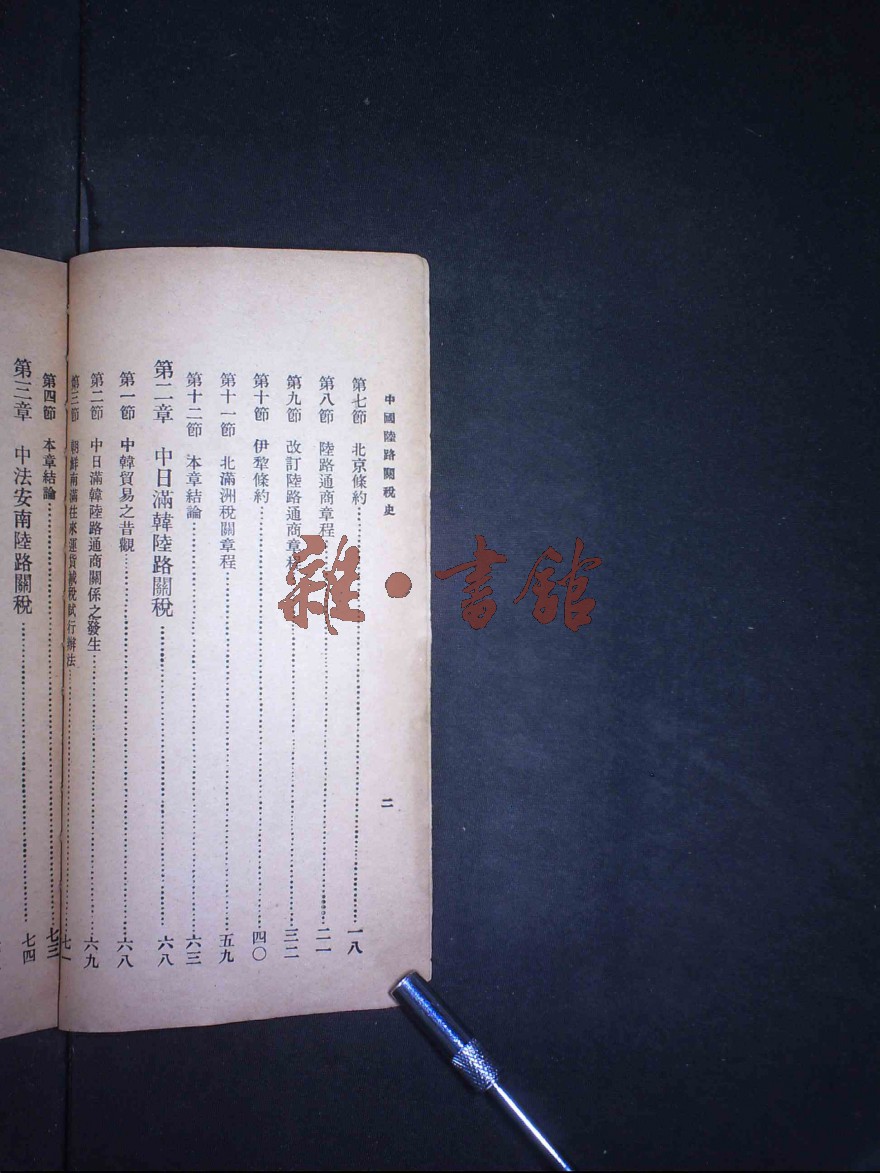 中國陸路關稅史
二
第七節 北京條約…一八
第八節 陸路通商章程…二一
第九節 改訂陸路通商章程…三二
第十節 伊犂條約…四〇
第十一節 北滿洲稅關章程…五九
第十二節 本章結論…六三
第二章 中日滿韓陸路關稅…六八
第一節 中韓貿易之昔觀…六八
第二節 中日滿韓陸路通商關係之發生…六九
第三節 朝鮮南滿往來運貨減稅試行辦法…七一
第四節 本章結論…七三
第三章 中法安南陸路關稅…七四
雜·書館